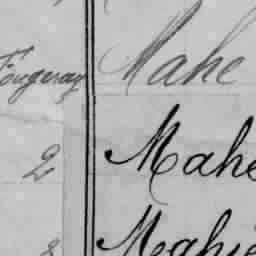 Fougeray Mahe
2 Mahe
Mahie